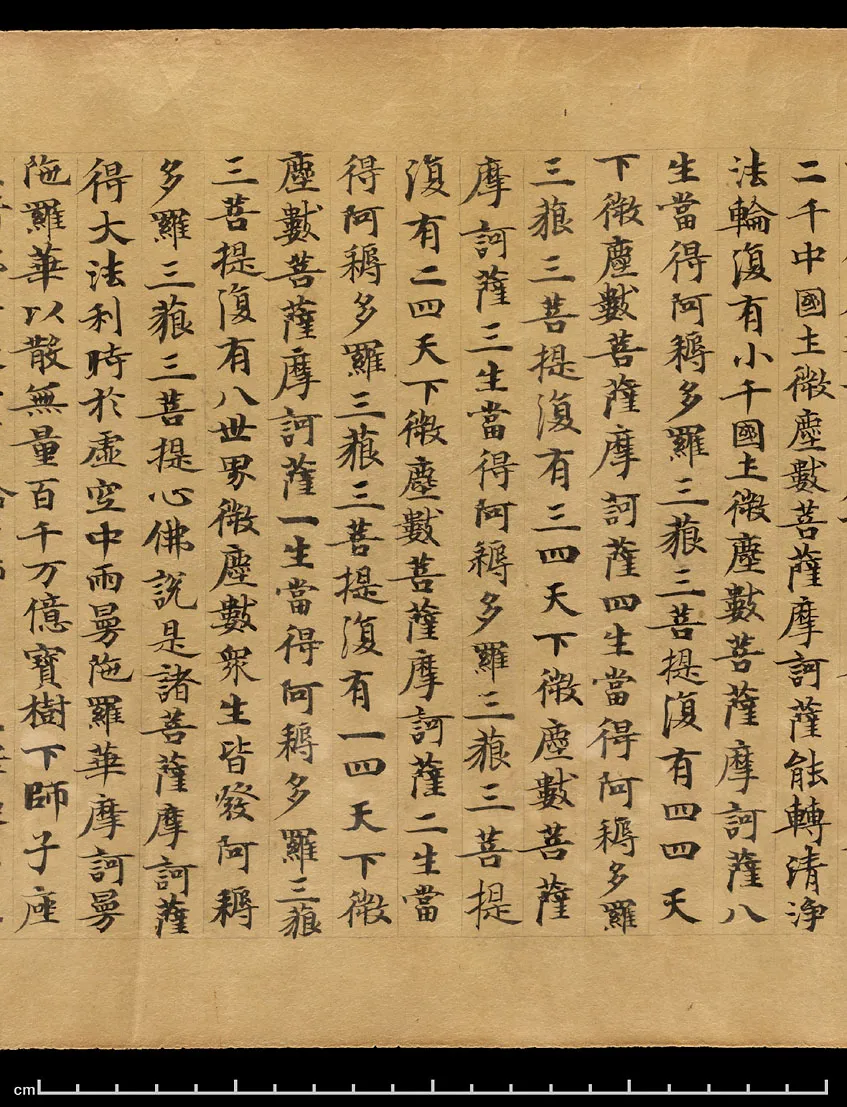 二千中國土微塵數菩薩摩訶薩能轉清淨
法輪復有小千國土微塵數菩薩摩訶薩八
生當得阿耨多羅三藐三菩提復有四四天
下微塵數菩薩摩訶薩四生當得阿耨多羅
三藐三菩提復有三四天下微塵數菩薩
摩訶薩三生當得阿耨多羅三藐三菩提
復有二四天下微塵數菩薩摩訶薩二生當
得阿耨多羅三藐三菩提復有一四天下微
塵數菩薩摩訶薩一生當得阿耨多羅三藐
三菩提復有八世界微塵數眾生皆發阿耨
多羅三藐三菩提心佛說是諸菩薩摩訶薩
得大法利時於虛空中雨曼陁羅華摩訶曼
陁羅華以散無量百千万億寶樹下師子座
cm